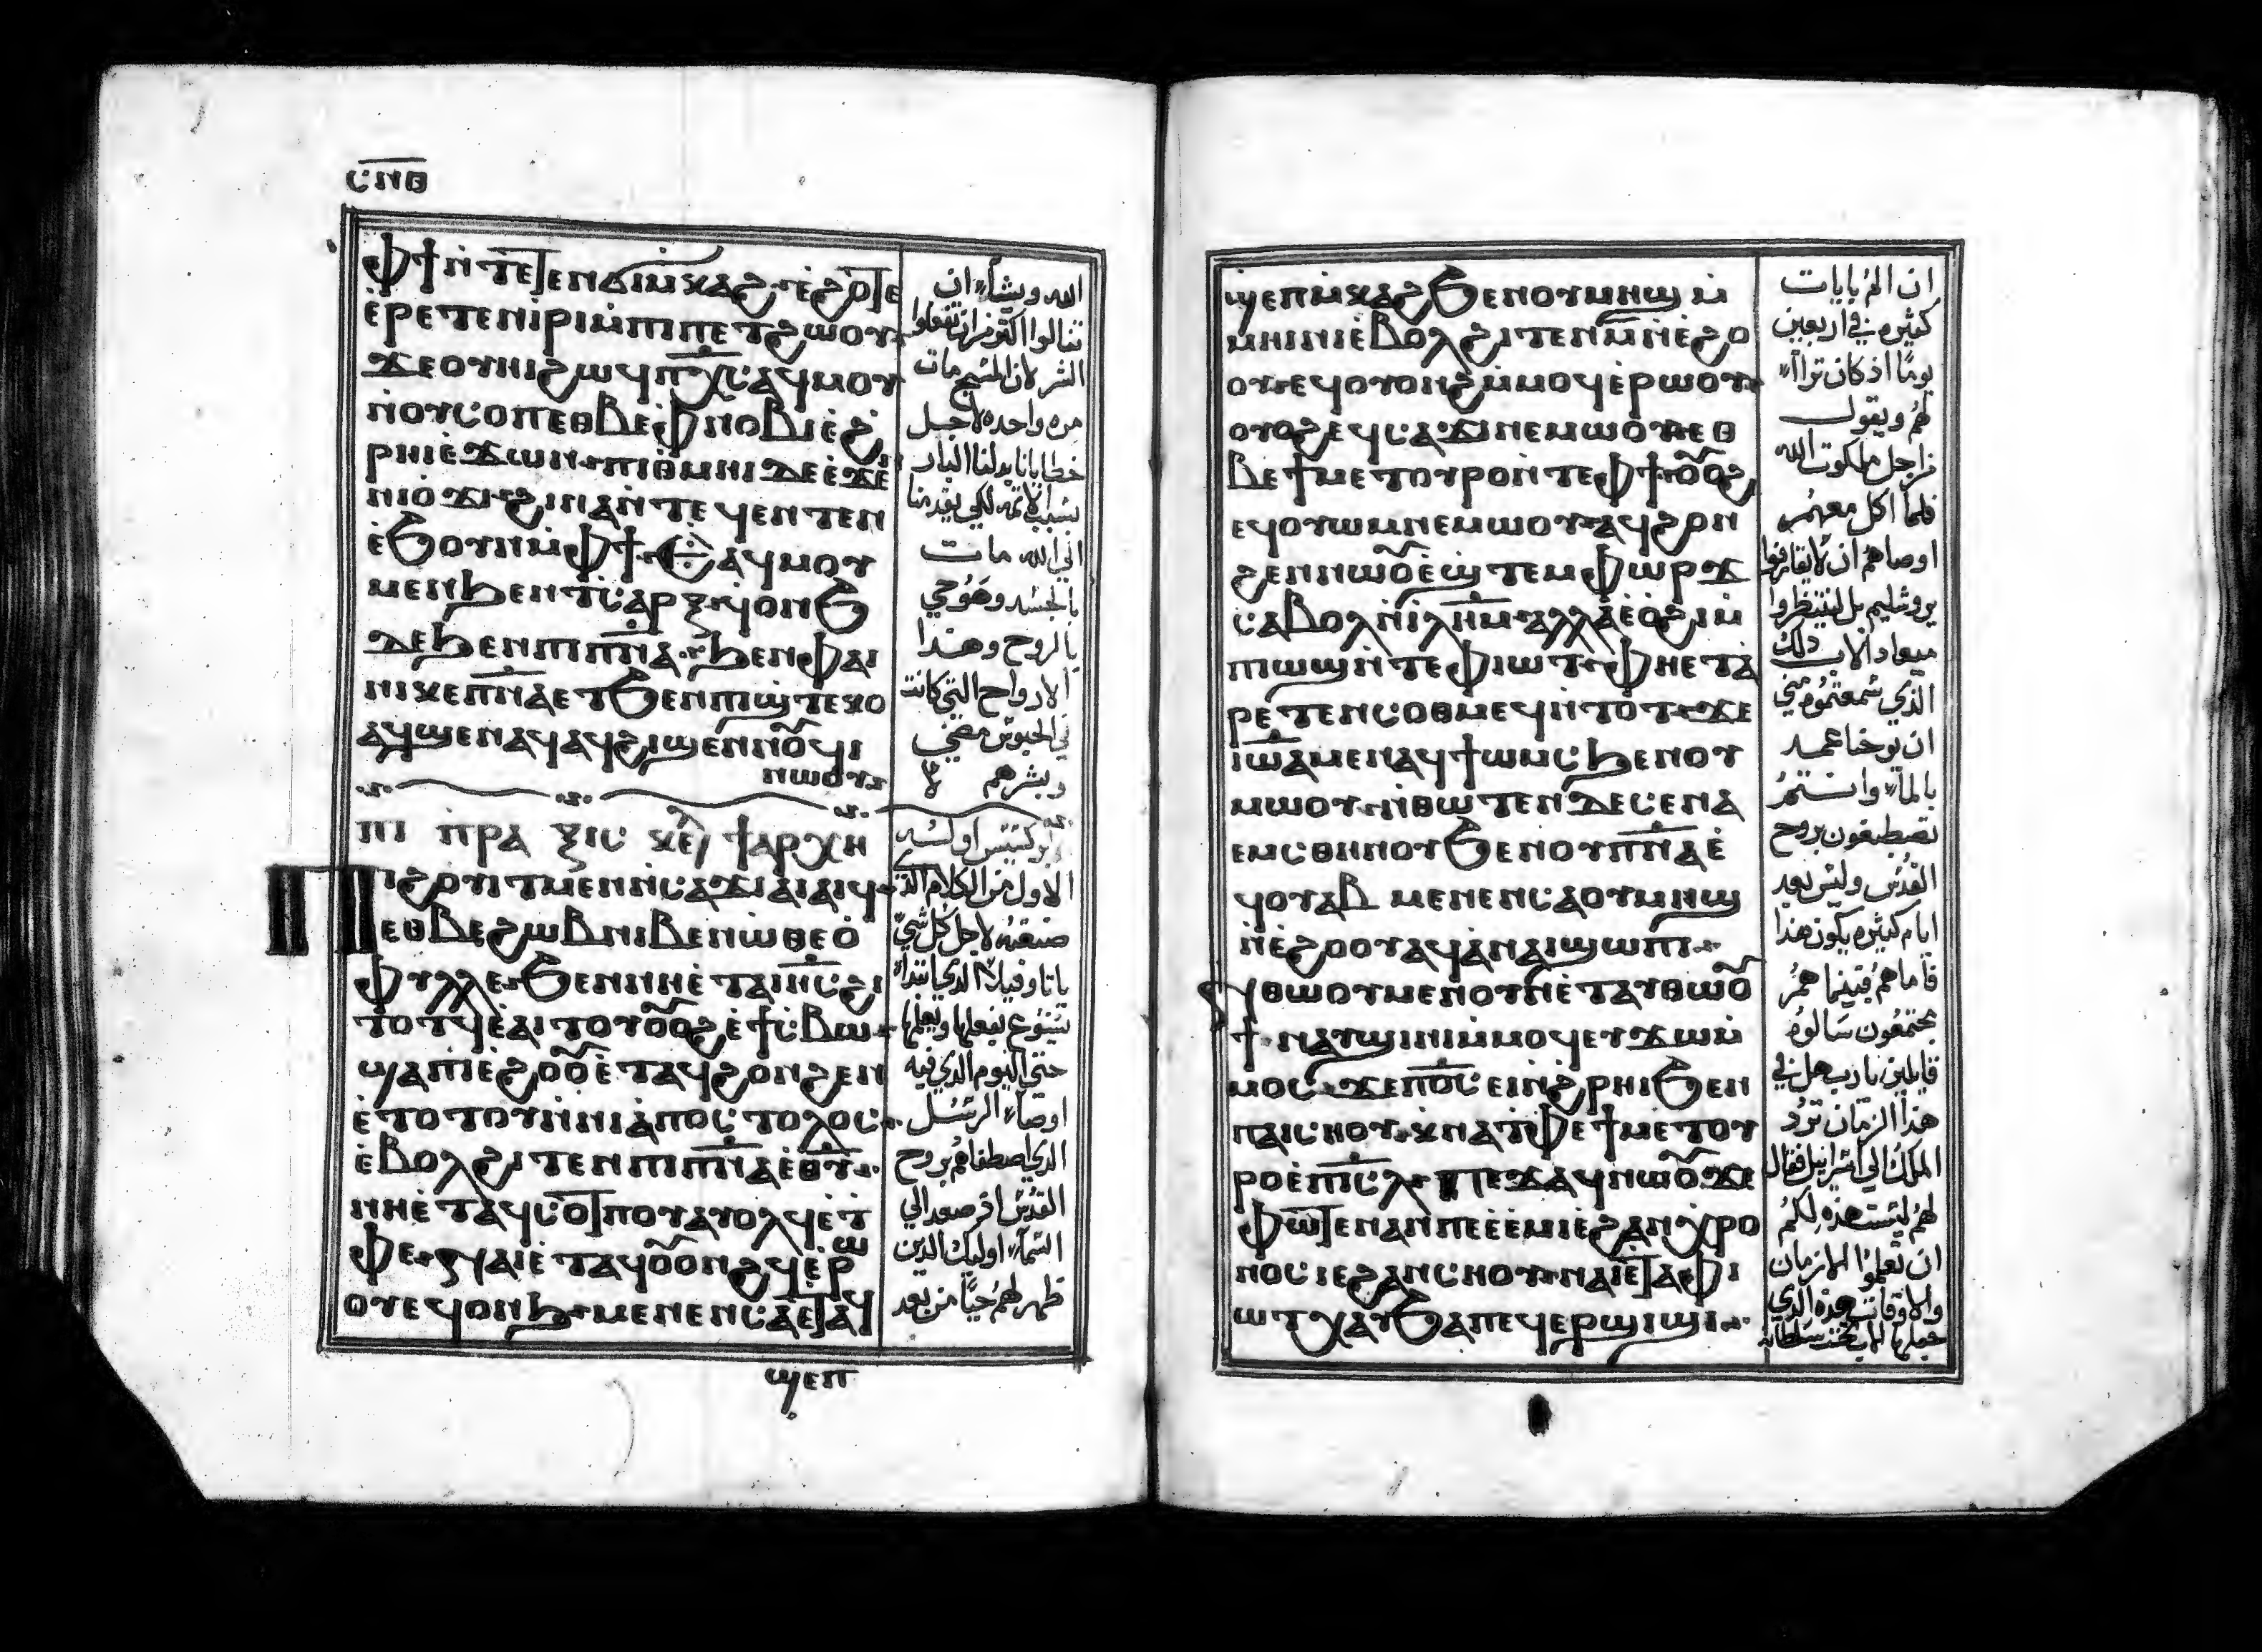 ⲥⲛⲑ
ⲫϯ ⲛ̀ⲧⲉ
ⲉ̀ⲣⲉⲧⲉⲛⲓ̀ⲣⲓ ⲙ̀ⲡⲓⲡⲉⲧϩⲱⲟⲩ
ϫⲉ ⲟⲩⲏⲓ ϩⲱϥ ⲡⲭ̅ⲥ̅ ⲁϥⲙⲟⲩ
ⲛ̀ⲟⲩⲥⲟⲡ ⲉⲑⲃⲉ ⲫⲛⲟⲃⲓ ⲉ̀ϩ
ⲣⲏⲓ ⲉ̀ϫⲱⲛ ⲡⲓⲑⲙⲏⲓ ⲇⲉ ⲉ̀ϫⲉ
ⲛⲓⲟ̀ϫⲓ ϩⲓⲛⲁ ⲛ̀ⲧⲉϥⲉⲛⲧⲉⲛ
ⲉ̀ϧⲟⲩⲛ ⲙ̀ⲫϯ ⲉⲁϥⲙⲟⲩ
ⲙⲉⲛ ϧⲉⲛ ⲧⲥⲁⲣⲝ ϥⲟⲛϧ
ⲇⲉ ϧⲉⲛ ⲡⲓⲡⲛ̅ⲁ̅ ϧⲉⲛ ⲫⲁⲓ
ⲛⲓⲕⲉⲡⲛ̅ⲁ̅ ⲉⲧϧⲉⲛ ⲡϣⲧⲉⲕⲟ
ⲁϥϣⲉⲛⲁϥ ⲁϥϩⲓϣⲉⲛⲛⲟⲩϥⲓ
ⲛⲱⲟⲩ
ⲡⲓ ⲡⲣⲁⲝⲓⲥ ⲕⲉ ϯⲁⲣⲭⲏ
ⲡⲓϩⲟⲩⲓⲧ ⲙⲉⲛ ⲛ̀ⲥⲁϫⲓ ⲁⲓⲁⲓϥ
ⲉⲑⲃⲉ ϩⲱⲃ ⲛⲓⲃⲉⲛ ⲱ̀ ⲑⲉⲟ̀
ⲫⲩⲗⲗⲉ ϧⲉⲛ ⲛⲏⲉ̀ⲧⲁ ⲓⲏ̅ⲥ̅ ϩⲓ
ⲧⲟⲧϥ ⲉ̀ⲁⲓⲧⲟⲩ ⲟⲩⲟϩ ⲉ̀ϯⲥⲃⲱ
ϣⲁ ⲡⲓⲉ̀ϩⲟⲟⲩ ⲉ̀ⲧⲁϥϩⲟⲛϩⲉⲛ
ⲉ̀ⲧⲟⲧⲟⲩ ⲛ̀ⲛⲓⲁ̀ⲡⲟⲥⲧⲟⲗⲟⲥ
ⲉ̀ⲃⲟⲗ ϩⲓⲧⲉⲛ ⲡⲓⲡⲛ̅ⲁ̅ ⲉ̅ⲑ̅ⲩ̅
ⲛⲏⲉ̀ⲧⲁϥⲥⲟⲧⲡⲟⲩ ⲁⲩⲟⲗϥ ⲉ̀ⲧ
ⲫⲉ ⲛⲁⲓ ⲉ̀ⲧⲁϥⲟⲩⲟⲛϩϥ ⲉ̀ⲣⲱ
ⲟⲩ ⲉϥⲟⲛϧ ⲙⲉⲛⲉⲛⲥⲁ ⲉⲧⲁϥ
ϣⲉⲡ
الله ويشاء ان
تنالوا اكثر من ان تفعلوا
الشر لان المسيح مات
مره واحده لاجل
خطايانا بدلنا البار
بسبب الاثمه لكي يقدمنا
الي الله مات
بالجسد وهو حي
بالروح وهذا
الارواح التي كانت
في الحبوس مضي
وبشرهم
ابركسيس اول سنه
الاول من الكلام الذي
صنعته لاجل كل شي
يا تاوفيلا الذي ابتدا
يسوع يفعلها ويعلمها
حتي اليوم الذي فيه
اوصا الرسل
الذي اصطفاهم بروح
القدس اذ صعد الي
السماء اوليك الذين
ظهر لهم حيا من بعد
ϣⲉⲡ ⲙ̀ⲕⲁϩ ϧⲉⲛ ⲟⲩⲙⲏϣ ⲙ̀
ⲙⲏⲓⲛⲓ ⲉ̀ⲃⲟⲗ ϩⲓⲧⲉⲛ ⲙ̅ ⲛ̀ⲉ̀ϩⲟ
ⲟⲩ ⲉϥⲟⲩⲟⲛϩ ⲙ̀ⲙⲟϥ ⲉ̀ⲣⲱⲟⲩ
ⲟⲩⲟϩ ⲉϥⲥⲁϫⲓ ⲛⲉⲙⲱⲟⲩ ⲉⲑ
ⲃⲉ ϯⲙⲉⲧⲟⲩⲣⲟ ⲛ̀ⲧⲉ ⲫϯ ⲟⲩⲟϩ
ⲉϥⲟⲩⲱⲙ ⲛⲉⲙⲱⲟⲩ ⲁϥϩⲟⲛ
ϩⲉⲛ ⲛⲱⲟⲩ ⲉ̀ϣⲧⲉⲙⲫⲱⲣϫ
ⲥⲁⲃⲟⲗ ⲛ̀ⲓ̅ⲗ̅ⲏ̅ⲙ̅ ⲁⲗⲗⲁ ⲉ̀ⲟ̀ϩⲓ ⲙ̀
ⲡⲓⲱϣ ⲛ̀ⲧⲉ ⲫⲓⲱⲧ ⲫⲏⲉⲧⲁ
ⲣⲉⲧⲉⲛⲥⲟⲑⲙⲉϥ ⲛ̀ⲧⲟⲧ ϫⲉ
ⲓⲱⲁ ⲙⲉⲛ ⲁϥϯⲱⲙⲥ ϧⲉⲛ ⲟⲩ
ⲙⲱⲟⲩ ⲛ̀ⲑⲱⲧⲉⲛ ⲇⲉ ⲥⲉⲛⲁ
ⲉⲙⲥ ⲑⲏⲛⲟⲩ ϧⲉⲛ ⲟⲩⲡⲛ̅ⲁ̅ ⲉ̀
ϥⲟⲩⲁⲃ ⲙⲉⲛⲉⲛⲥⲁ ⲟⲩⲙⲏϣ
ⲛ̀ⲉ̀ϩⲟⲟⲩ ⲁϥⲁⲛ ⲛⲁⲓϣⲱⲡⲓ
ⲛ̀ⲑⲱⲟⲩ ⲙⲉⲛ ⲟⲩⲛ ⲉ̀ⲧⲁⲩⲑⲱⲟⲩ
ϯ ⲛⲁⲩϣⲓⲛⲓ ⲙ̀ⲙⲟϥ ⲉⲩϫⲱ ⲙ̀
ⲙⲟⲥ ϫⲉ ⲡⲟ̅ⲥ̅ ⲉⲓⲛ ϩⲣⲏⲓ ϧⲉⲛ
ⲡⲁⲓⲥⲏⲟⲩ ⲭⲛⲁⲧⲫⲉ ϯⲙⲉⲧⲟⲩ
ⲣⲟ ⲉ̀ⲡⲓⲥ̅ⲗ̅ ⲡⲉϫⲁϥ ⲛⲱⲟⲩ ϫⲉ
ⲫⲱⲧⲉⲛ ⲁⲛ ⲡⲉ ⲉ̀ⲉ̀ⲙⲓ ⲉ̀ϩⲁⲛⲭⲣⲟ
ⲛⲟⲥ ⲓⲉ ϩⲁⲛⲥⲏⲟⲩ ⲛⲁⲓ ⲉⲧⲁ ⲫⲓ
ⲱⲧ ⲭⲁⲩ ϧⲁ ⲡⲉϥⲉⲣϣⲓϣⲓ
ان الم بايات
كثيره في اربعين
يوما اذ كان ترااا
لهم ويقول
من اجل ملكوت الله
فلما اكل معهم
اوصاهم ان لا يفارقوا
يروشليم بل لينتظروا
ميعاد الاب ذلك
الذي سمعتموه مني
ان يوحنا عمد
بالماء وانتم
تصطبغون بروح
القدس وليس بعد
ايام كثيره يكون هذا
فاما هم فبينما هم
مجتمعون سالوه
قايلين يا رب هل في
هذا الزمان ترد
الملك الي اسراييل فقال
لهم ليست هذه لكم
ان تعلموا الازمان
والاوقات هذه الذي
جعلها الاب تحت سلطانه